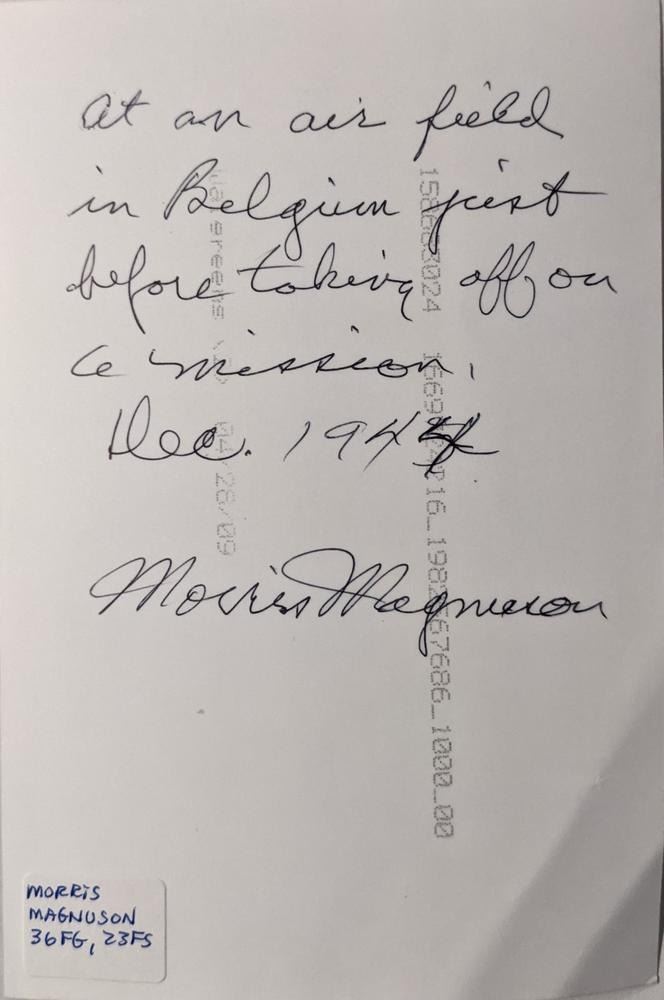 At an air field
in Belgium just
before taking off on
a mission.
Dec. 1944
Morris Magnuson
Walgreens 04/28/09
MORRIS
MAGNUSON
36FG, 23FS